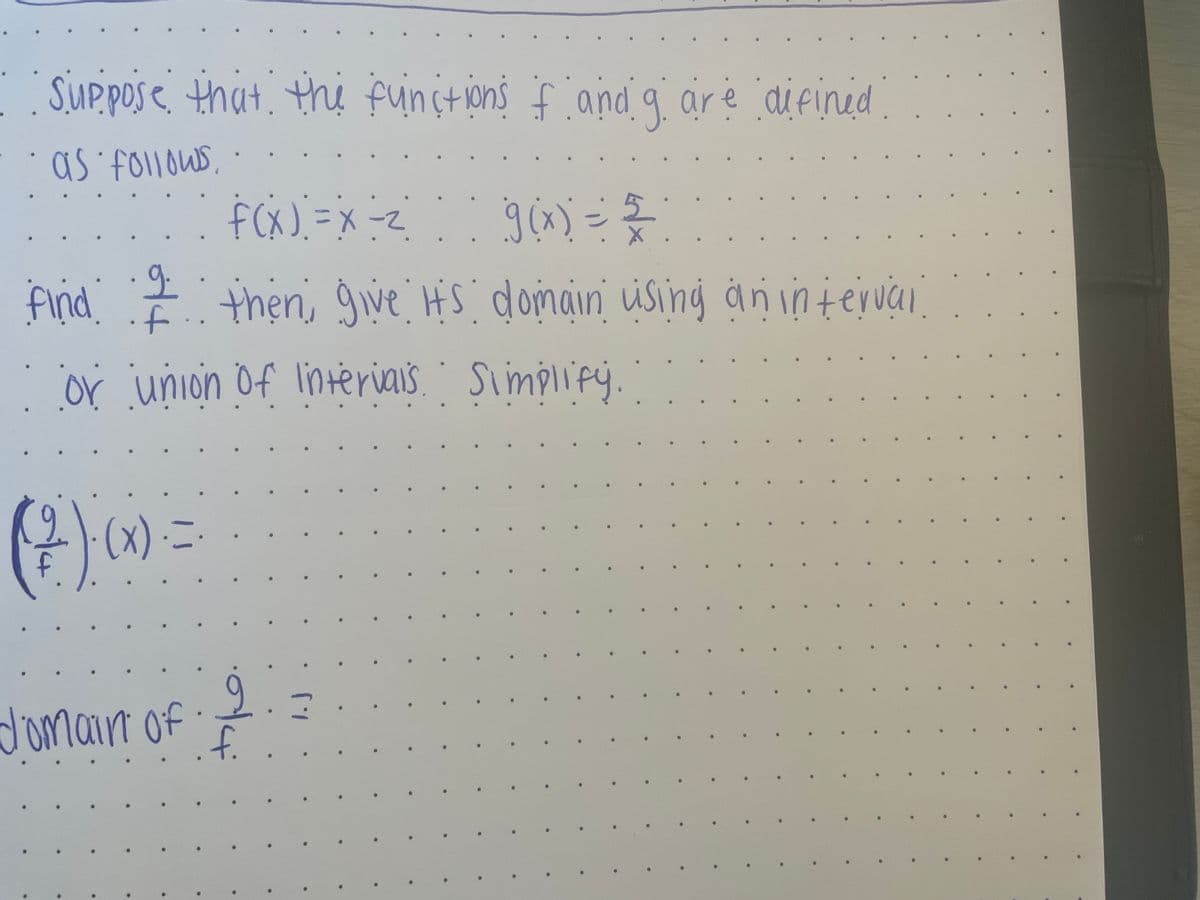 Suppose that the functions f and g are defined
as follows.
f(x) = x - 2 g(x) = 5/x
find g/f then, give its domain using an interval
or union of intervals. Simplify.
(g/f)(x) =
domain of g/f =